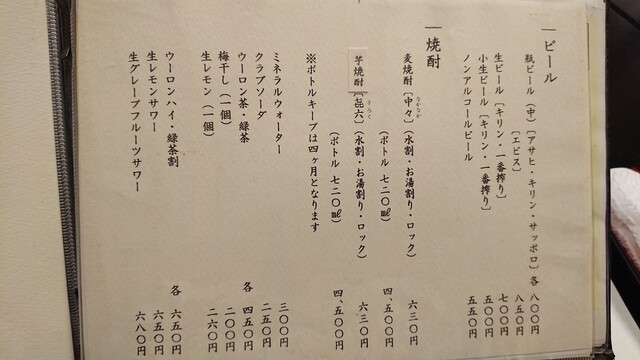 ビール
瓶ビール（中）［アサヒ・キリン・サッポロ］各 八〇〇円
［エビス］ 八五〇円
生ビール［キリン・一番搾り］ 七〇〇円
小生ビール［キリン・一番搾り］ 五〇〇円
ノンアルコールビール 五五〇円
焼酎
麦焼酎［中々］（水割・お湯割り・ロック） 六三〇円
なかなか
（ボトル 七二〇㎖） 四、五〇〇円
芋焼酎［㐂六］（水割・お湯割り・ロック） 六三〇円
きろく
（ボトル 七二〇㎖） 四、五〇〇円
※ボトルキープは四ヶ月となります
ミネラルウォーター 三〇〇円
クラブソーダ 二五〇円
ウーロン茶・緑茶 各 四五〇円
梅干し（一個） 二〇〇円
生レモン（一個） 二六〇円
ウーロンハイ・緑茶割 各 六五〇円
生レモンサワー 六五〇円
生グレープフルーツサワー 六八〇円